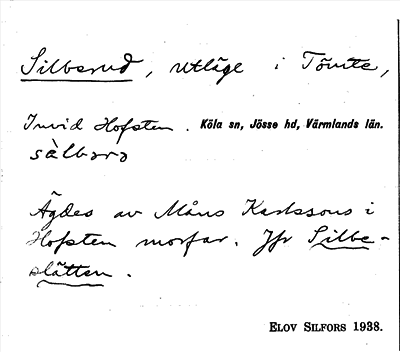 Silberud, utläge i Tömte,
Invid Hofsten. Köla sn, Jösse hd, Värmlands län.
Ägdes av Måns Karlssons i
Hofsten morfar. Jfr Silbe-
slätten.
ELOV SILFORS 1938.